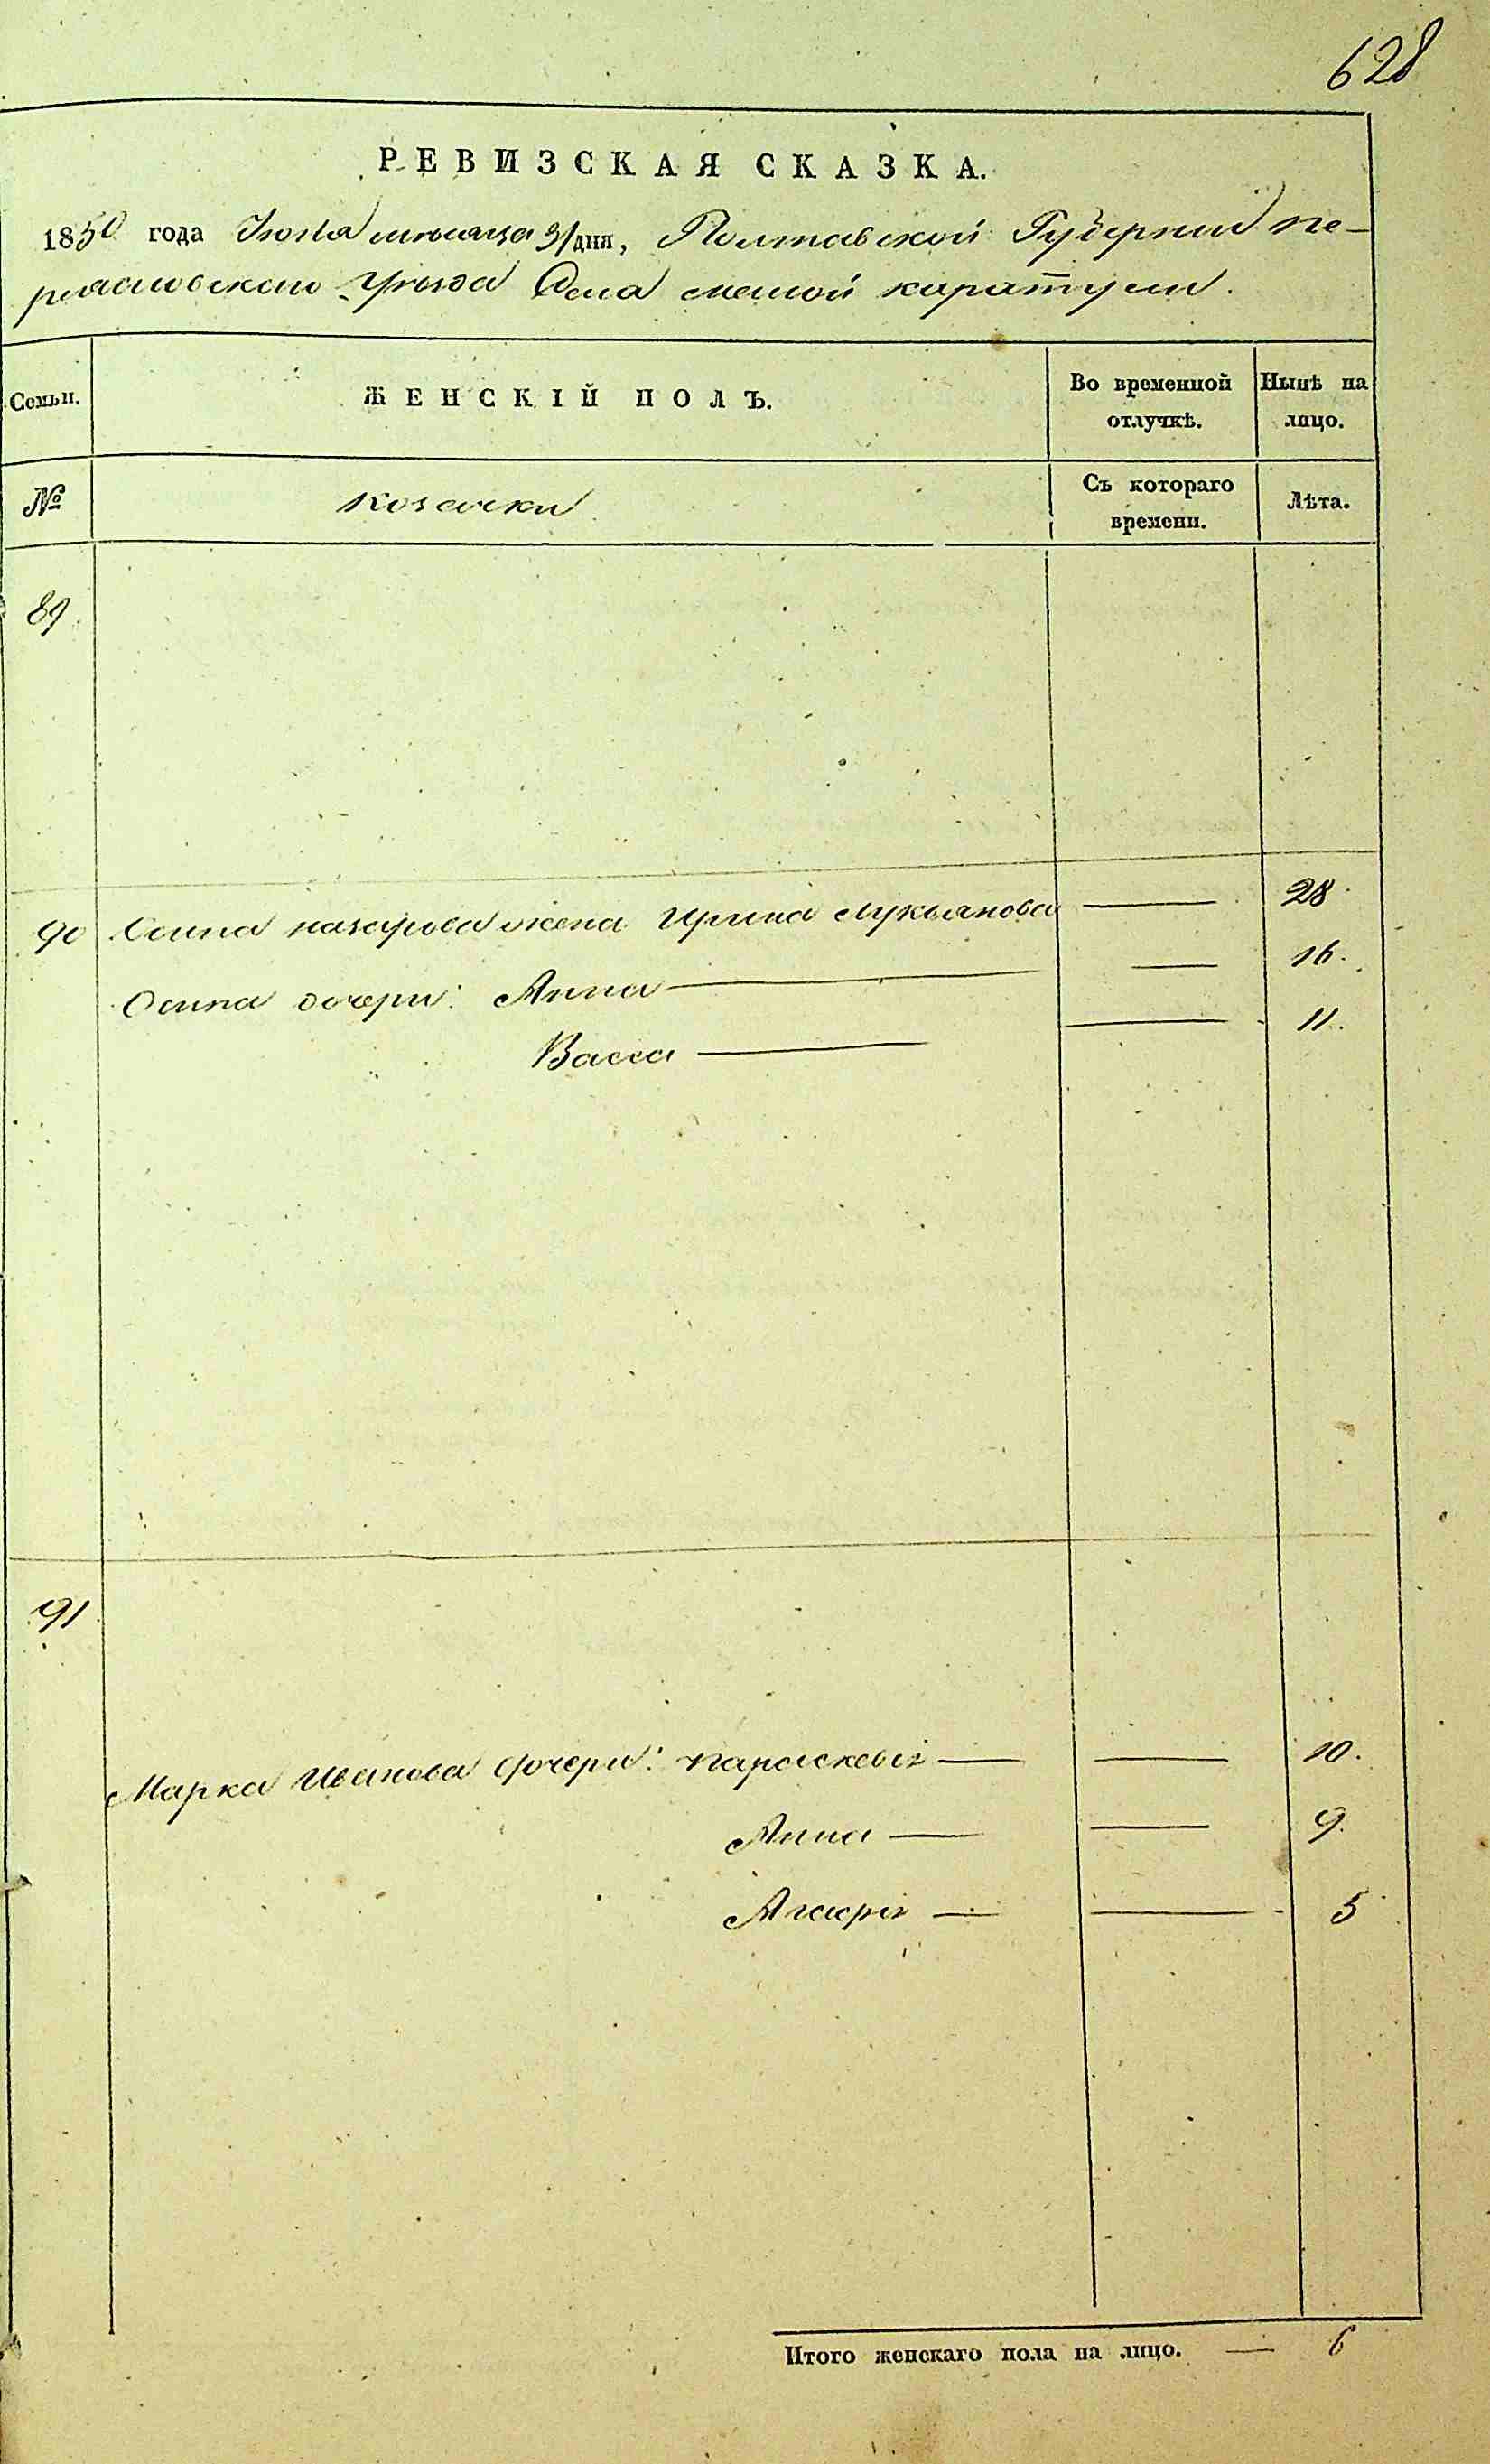 628
РЕВИЗСКАЯ СКАЗКА.
1850 года Іюня мѣсяца 3/дня, Полтавской Губерніи Пе-
реяславскаго Уѣзда Села малой каратули.
Семьи. ЖЕНСКІЙ ПОЛЪ. Во временной отлучкѣ. Нынѣ на лицо.
№ Козачки Съ котораго времени. Лѣта.
89.
90 Осипа назарова жена Ирина Лукьянова — 28
Осипа дочери: Анна — — 16.
Васса — — 11.
91
Марка Иванова дочери: параскевія — — 10.
Анна — — 9.
Агафія — — 5
Итого женскаго пола на лицо. — 6